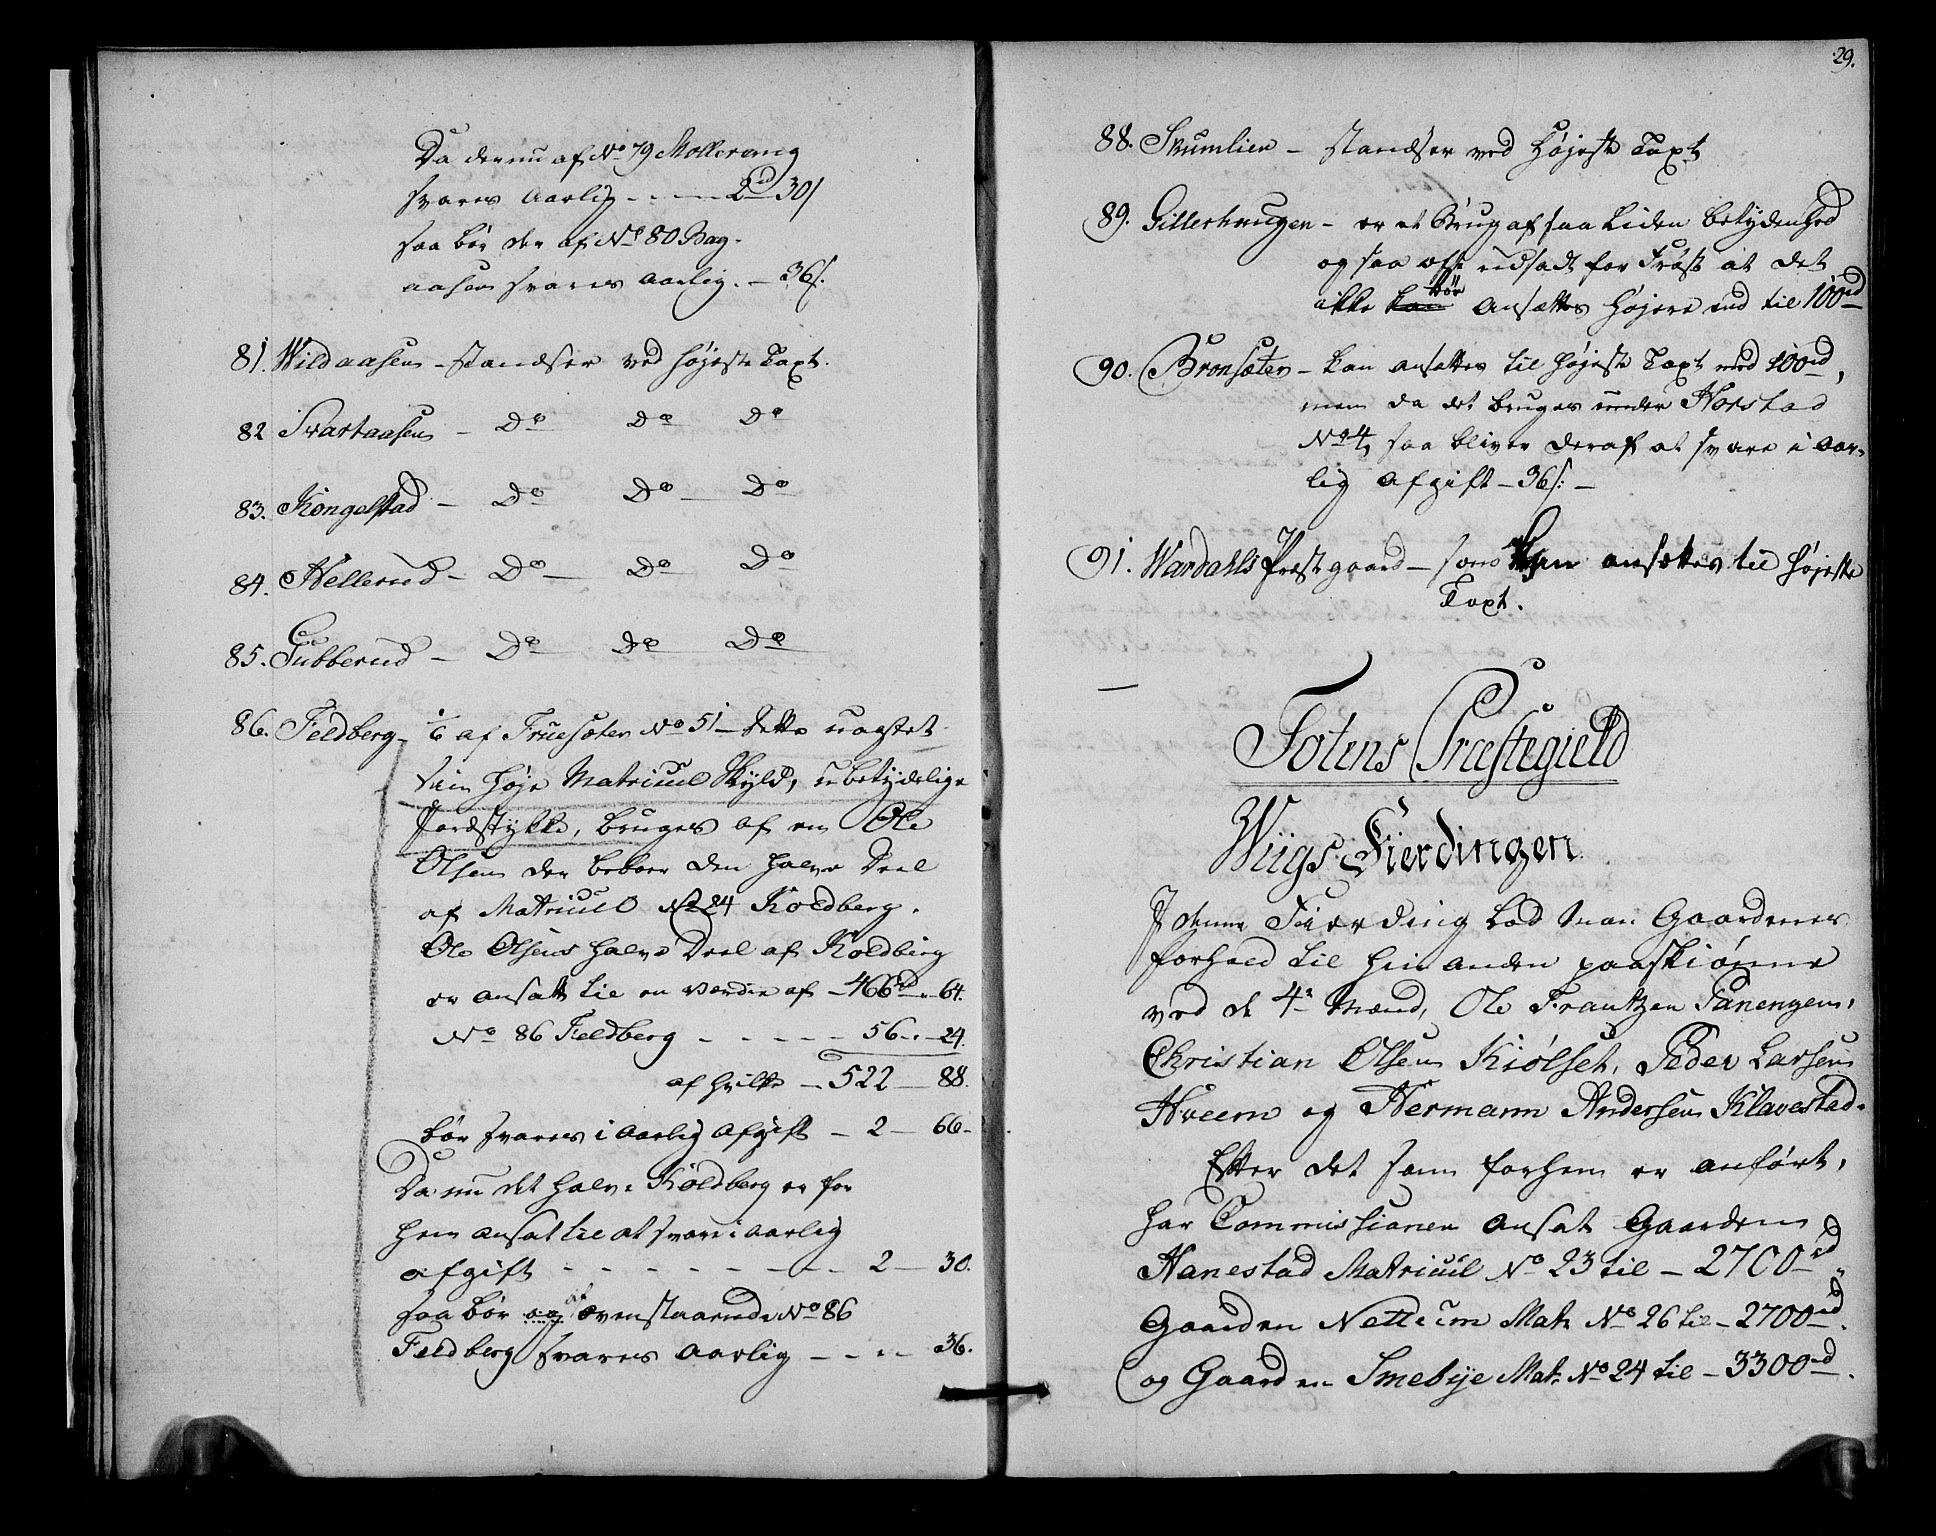 Da der nu af No 79 Mollereng
svares aarlig - - - 2rd 30/
saa bør der af No 80 Bag-
aasen svares aarlig. - 36/.
81. Wildaasen - standser ved højeste Taxt.
82 Svartaasen - Do Do Do
83. Kongelstad - Do Do - Do
84. Hellerud - Do - Do Do
85. Gubberud - Do Do Do
86. Feldberg - 1/6 af Fruesæter No 51 - dette uagtet
sin høje Matricul Skyld, ubetydelige
Jordstykke, bruges af en Ole
Olsen der beboer den halve Deel
af Matricul No 24 Koldberg.
Ole Olsens halve Deel af Koldberg
er ansatt til en værdie af - 466rd - 64.
No 86 Feldberg - - - - - 56 - - 24.
af hvilke - 522 - 88.
bør svares i aarlig afgift - 2 - 66 -
Da nu det halve Koldberg er for
hen ansat til at svare i aarlig
afgift - - - - - - - - 2 - 30.
saa bør og af ovenstaaende No 86
Feldberg svares aarlig - - - - 36.
29.
88. Skumlien - standser ved højeste Taxt
89. Gillerhaugen - er et Brug af saa liden betydenhed
og saa ofte udsadt for Frost at det
ikke kan bør ansættes højere end til 100rd
90. Bronsæter - kan ansættes til højeste Taxt med 100rd,
men da det bruges under Horstad
No 4, saa bliver deraf at svare i aar-
lig afgift - 36/: -
91. Wardahls Præstgaard - som ansættes til højeste
Taxt.
Totens Præstegield
Wiigs Fierdingen
I denne Fierding lod man Gaardenes
forhold til hinanden paaskiønne
ved de 4re Mænd, Ole Frantzen Panengen,
Christian Olsen Kiølset, Peder Larsen
Hveem og Hermann Andersen Klavestad.
Efter det som forhen er anført,
har Commissionen ansat Gaarden
Hanestad Matricul No 23 til - 2700rd,
Gaarden Nettum Mat: No 26 til - 2700rd.
og Gaarden Smebye Mat: No 24 til - 3300rd.